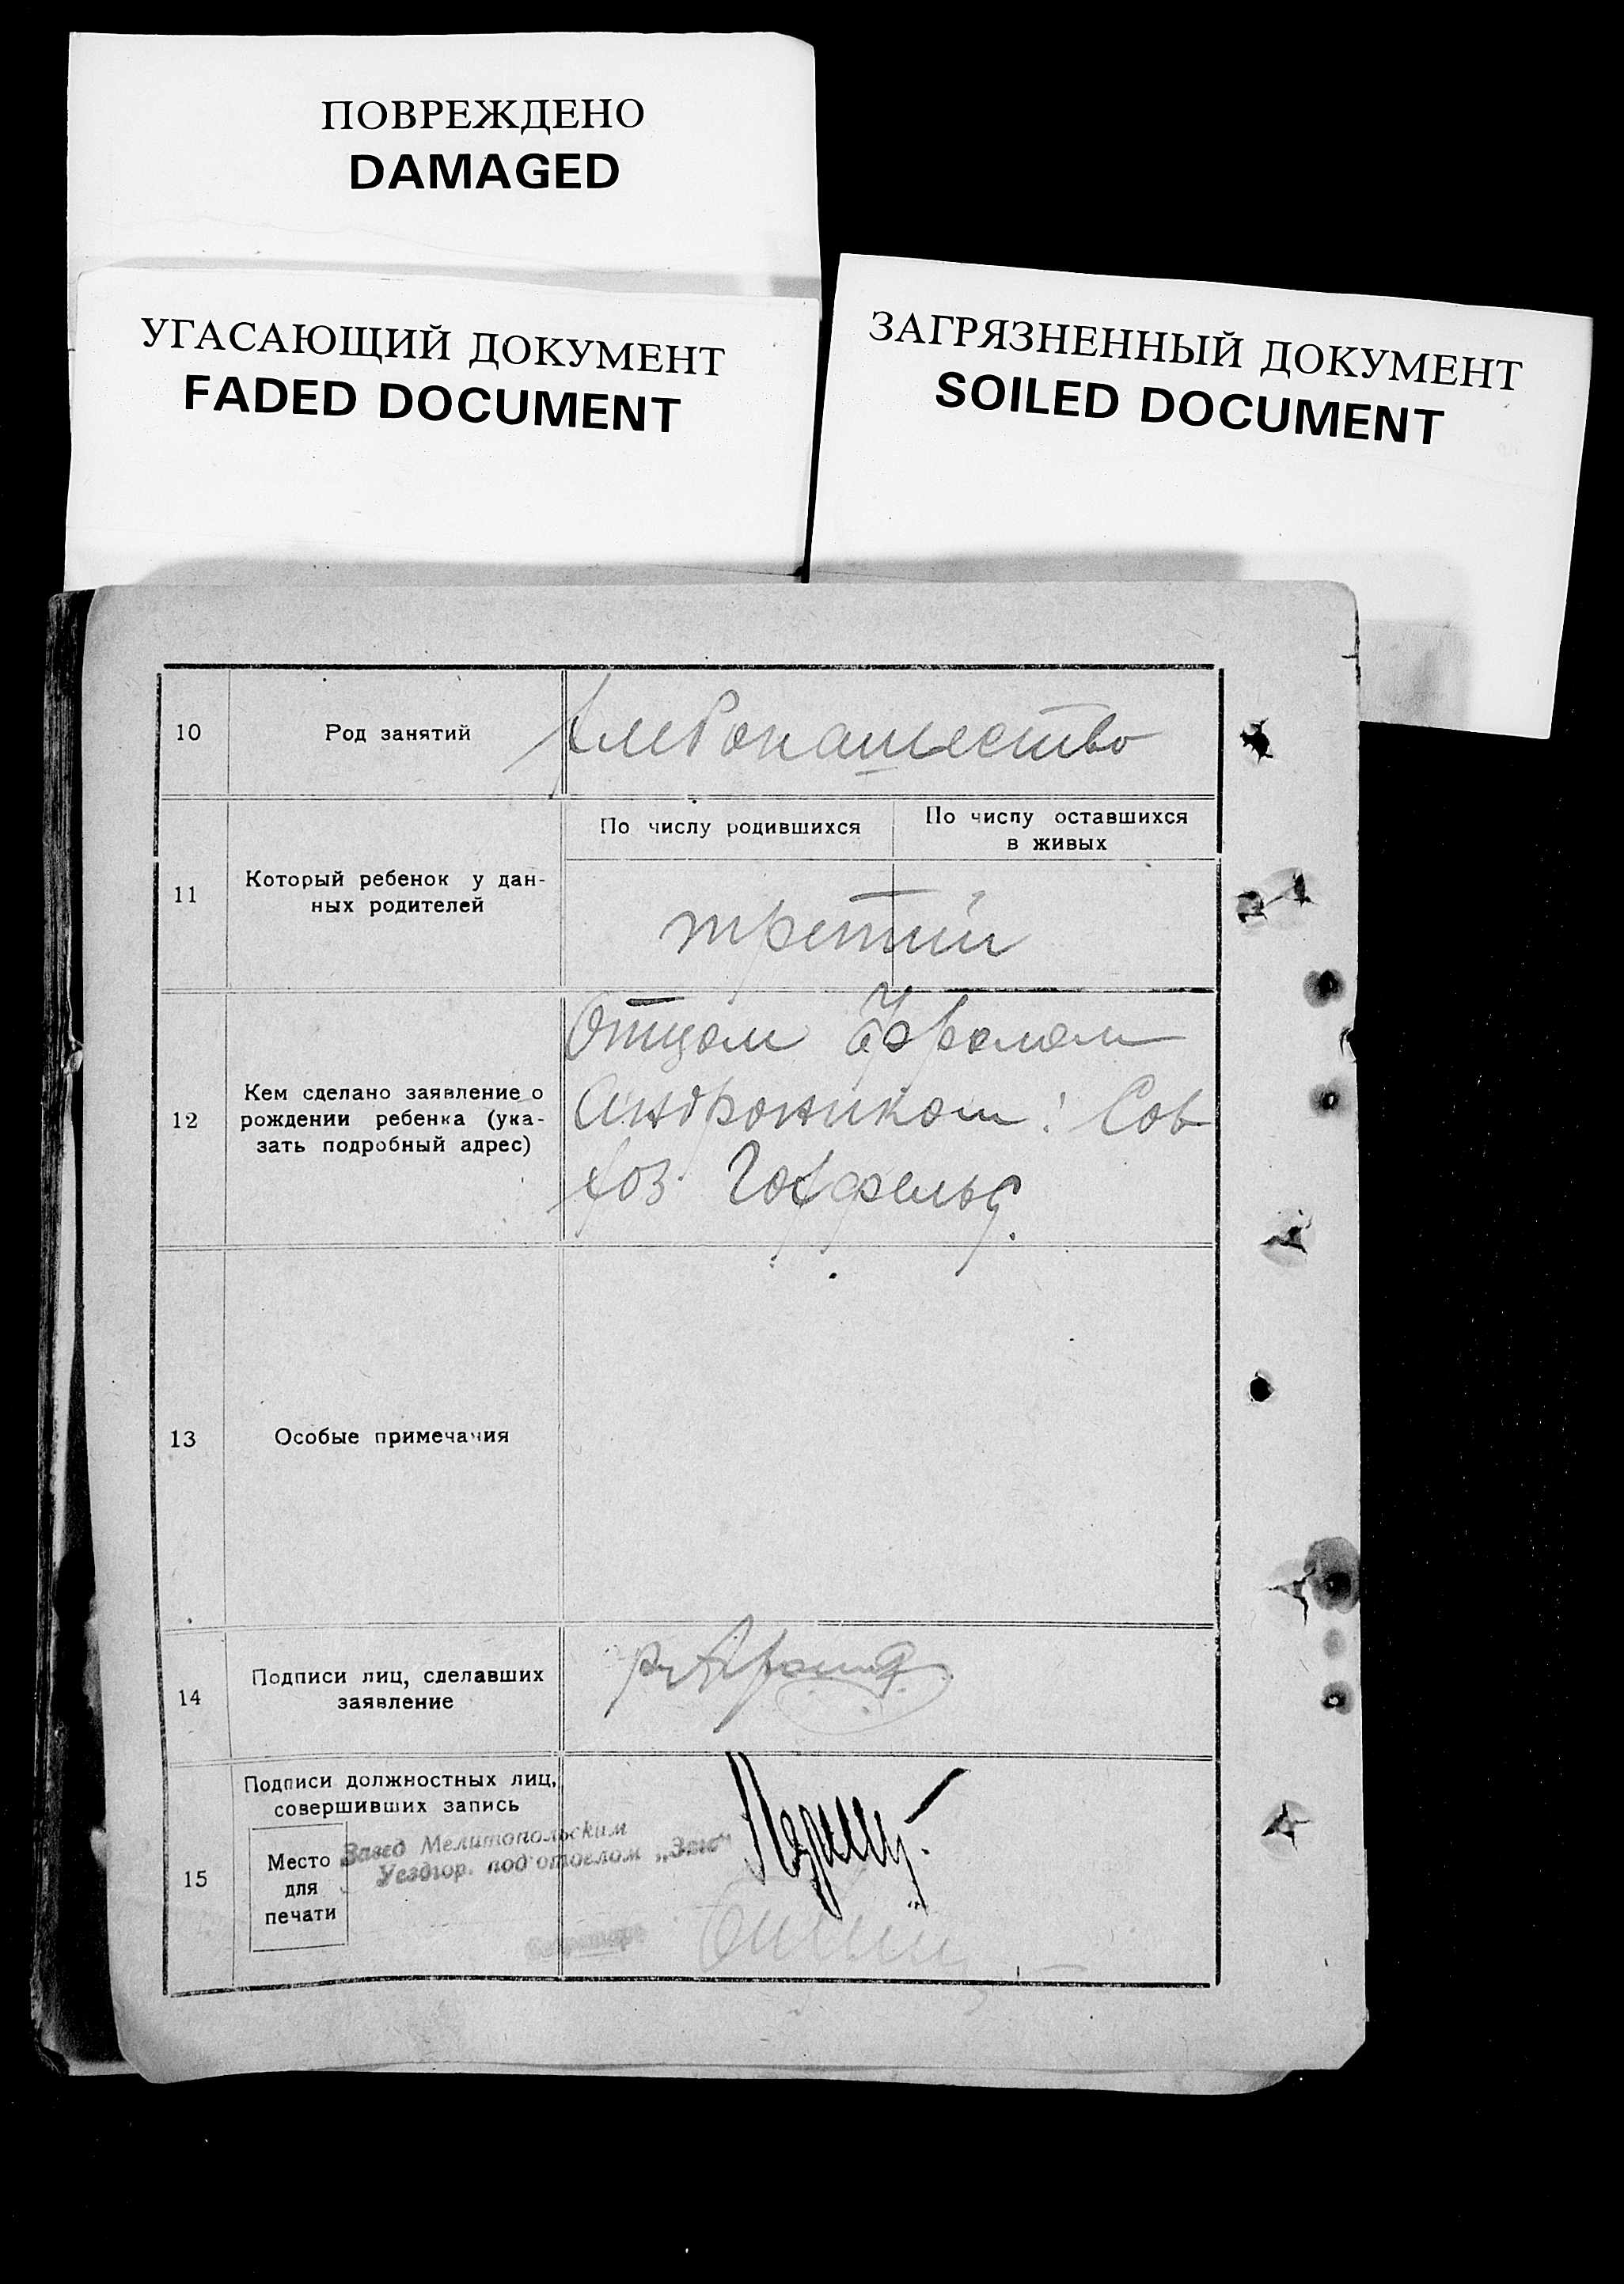 ПОВРЕЖДЕНО
DAMAGED
УГАСАЮЩИЙ ДОКУМЕНТ
FADED DOCUMENT
ЗАГРЯЗНЕННЫЙ ДОКУМЕНТ
SOILED DOCUMENT
10
Род занятий
хлебопашество
11
Который ребенок у дан-
ных родителей
По числу родившихся
По числу оставшихся
в живых
третий
12
Кем сделано заявление о
рождении ребенка (ука-
зать подробный адрес)
Отцом Фролом
Андроником: Сов
хоз Гохфельд.
13
Особые примечания
14
Подписи лиц, сделавших
заявление
15
Подписи должностных лиц,
совершивших запись
Место
для
печати
Завед Мелитопольским
Уездгор. подотделом „Загс“